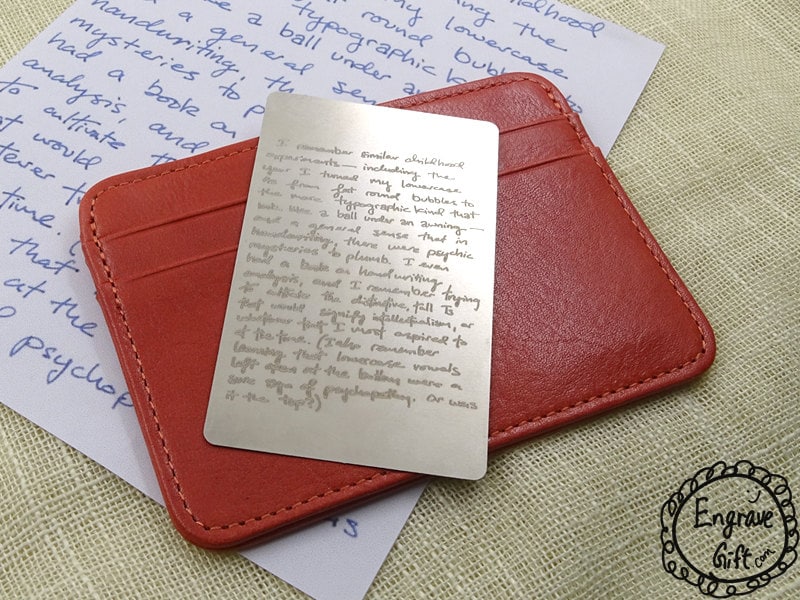 I remember similar childhood
experiments — including the
year I turned my lowercase
as from fat round bubbles to
the more typographic kind that
look like a ball under an awning —
and a general sense that in
handwriting, there were psychic
mysteries to plumb. I even
had a book on handwriting
analysis, and I remember trying
to cultivate the distinctive, tall Is
that would signify intellectualism, or
whatever trait I most aspired to
at the time. (I also remember
learning that lowercase vowels
left open at the bottom were a
sure sign of psychopathy. Or was
it the top?)
childhood
the
my lowercase
round bubb
typographic k
a ball under a
a general sen
handwriting, th
mysteries to p
had a book on
analysis, and
to cultivate th
at would
tever t
time. (
that
at the
psychop
Engrave
Gift.com